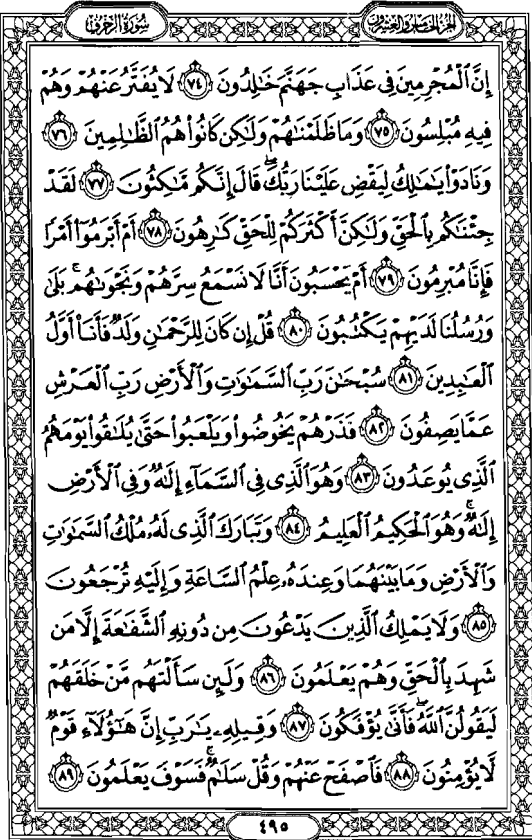 سُورَةُ الزُّخْرُفِ
الجُزْءُ الخَامِسُ وَالعِشْرُونَ
إِنَّ ٱلْمُجْرِمِينَ فِى عَذَابِ جَهَنَّمَ خَٰلِدُونَ ﴿٧٤﴾ لَا يُفَتَّرُ عَنْهُمْ وَهُمْ
فِيهِ مُبْلِسُونَ ﴿٧٥﴾ وَمَا ظَلَمْنَٰهُمْ وَلَٰكِن كَانُوا۟ هُمُ ٱلظَّٰلِمِينَ ﴿٧٦﴾
وَنَادَوْا۟ يَٰمَٰلِكُ لِيَقْضِ عَلَيْنَا رَبُّكَ ۖ قَالَ إِنَّكُم مَّٰكِثُونَ ﴿٧٧﴾ لَقَدْ
جِئْنَٰكُم بِٱلْحَقِّ وَلَٰكِنَّ أَكْثَرَكُمْ لِلْحَقِّ كَٰرِهُونَ ﴿٧٨﴾ أَمْ أَبْرَمُوٓا۟ أَمْرًا
فَإِنَّا مُبْرِمُونَ ﴿٧٩﴾ أَمْ يَحْسَبُونَ أَنَّا لَا نَسْمَعُ سِرَّهُمْ وَنَجْوَىٰهُم ۚ بَلَىٰ
وَرُسُلُنَا لَدَيْهِمْ يَكْتُبُونَ ﴿٨٠﴾ قُلْ إِن كَانَ لِلرَّحْمَٰنِ وَلَدٌ فَأَنَا۠ أَوَّلُ
ٱلْعَٰبِدِينَ ﴿٨١﴾ سُبْحَٰنَ رَبِّ ٱلسَّمَٰوَٰتِ وَٱلْأَرْضِ رَبِّ ٱلْعَرْشِ
عَمَّا يَصِفُونَ ﴿٨٢﴾ فَذَرْهُمْ يَخُوضُوا۟ وَيَلْعَبُوا۟ حَتَّىٰ يُلَٰقُوا۟ يَوْمَهُمُ
ٱلَّذِى يُوعَدُونَ ﴿٨٣﴾ وَهُوَ ٱلَّذِى فِى ٱلسَّمَآءِ إِلَٰهٌ وَفِى ٱلْأَرْضِ
إِلَٰهٌ ۚ وَهُوَ ٱلْحَكِيمُ ٱلْعَلِيمُ ﴿٨٤﴾ وَتَبَارَكَ ٱلَّذِى لَهُۥ مُلْكُ ٱلسَّمَٰوَٰتِ
وَٱلْأَرْضِ وَمَا بَيْنَهُمَا وَعِندَهُۥ عِلْمُ ٱلسَّاعَةِ وَإِلَيْهِ تُرْجَعُونَ
﴿٨٥﴾ وَلَا يَمْلِكُ ٱلَّذِينَ يَدْعُونَ مِن دُونِهِ ٱلشَّفَٰعَةَ إِلَّا مَن
شَهِدَ بِٱلْحَقِّ وَهُمْ يَعْلَمُونَ ﴿٨٦﴾ وَلَئِن سَأَلْتَهُم مَّنْ خَلَقَهُمْ
لَيَقُولُنَّ ٱللَّهُ ۖ فَأَنَّىٰ يُؤْفَكُونَ ﴿٨٧﴾ وَقِيلِهِۦ يَٰرَبِّ إِنَّ هَٰٓؤُلَآءِ قَوْمٌ
لَّا يُؤْمِنُونَ ﴿٨٨﴾ فَٱصْفَحْ عَنْهُمْ وَقُلْ سَلَٰمٌ ۚ فَسَوْفَ يَعْلَمُونَ ﴿٨٩﴾
٤٩٥